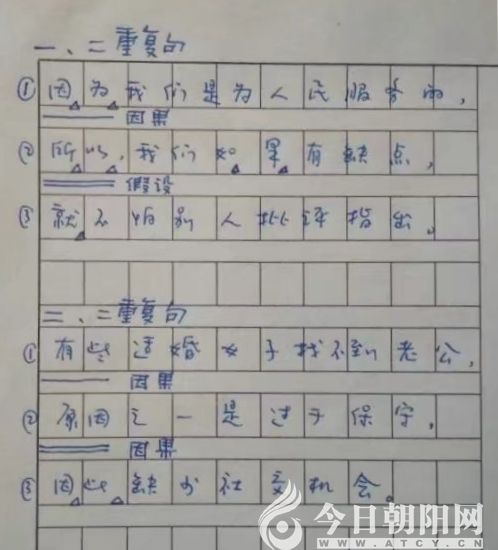 一、二重复句
① 因为我们是为人民服务的,
因果
② 所以,我们如果有缺点,
假设
③ 就不怕别人批评指出。
二、二重复句
① 有些适婚女子找不到老公,
因果
② 原因之一是过于保守,
因果
③ 因此缺少社交机会。
今日朝阳网
WWW.ATCY.CN